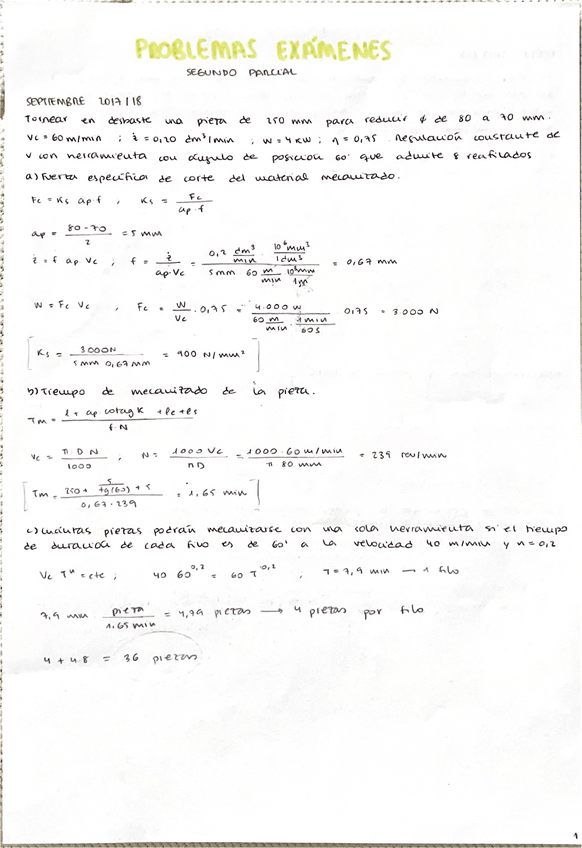 PROBLEMAS EXÁMENES
SEGUNDO PARCIAL
SEPTIEMBRE 2017/18
Tornear en desbaste una pieza de 250 mm para reducir ϕ de 80 a 70 mm.
Vc = 60 m/min ; ż = 0,20 dm³/min ; W = 4 KW ; η = 0,75 . Regulación constante de
v con herramienta con ángulo de posición 60° que admite 8 reafilados
a) Fuerza específica de corte del material mecanizado.
Fc = Ks ap·f , Ks = Fc / ap·f
ap = 80-70 / 2 = 5 mm
ż = f ap Vc , f = ż / ap·Vc = 0,2 dm³/min · 10⁶mm³/1dm³ / 5mm 60 m/min 10³mm/1m = 0,67 mm
W = Fc Vc , Fc = W/Vc · 0,75 = 4.000 W / 60 m/min · 1min/60s 0,75 = 3.000 N
[ Ks = 3000N / 5mm 0,67mm = 900 N/mm² ]
b) Tiempo de mecanizado de la pieza.
Tm = l + ap cotag K + le + ls / f·N
Vc = π·D·N / 1000 , N = 1000 Vc / πD = 1000·60 m/min / π 80 mm = 239 rev/min
[ Tm = 250 + 5/tg(60) + 5 / 0,67·239 = 1,65 min ]
c) Cuántas piezas podrán mecanizarse con una sola herramienta si el tiempo
de duración de cada filo es de 60' a la velocidad 40 m/min y n = 0,2
Vc Tⁿ = cte ; 40 60^0,2 = 60 T^0,2 , T = 7,9 min → 1 filo
7,9 min pieza / 1,65 min = 4,79 piezas → 4 piezas por filo
4 + 4·8 = 36 piezas
1